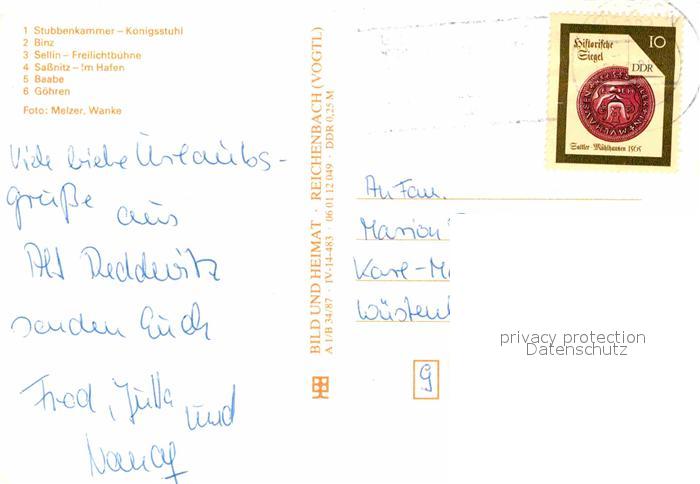 1 Stubbenkammer – Königsstuhl
2 Binz
3 Sellin – Freilichtbühne
4 Saßnitz – Im Hafen
5 Baabe
6 Göhren
Foto: Melzer, Wanke
Viele liebe Urlaubs-
grüße aus
Alt Reddevitz
senden Euch
Fred, Jutta und
Nancy
BILD UND HEIMAT · REICHENBACH (VOGTL)
A 1/B 34/87 · IV-14-483 · 06 01 12 049 · DDR 0,25 M
Historische
Siegel
10
DDR
Sattler · Mühlhausen 1565
An Fam.
Marion
Karl-M
Wüsten
privacy protection
Datenschutz